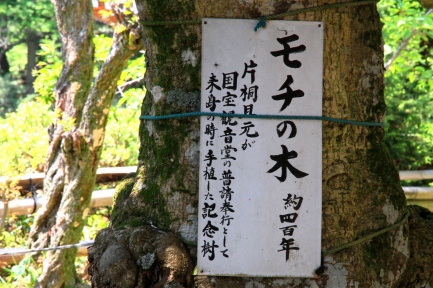 モチの木
約四百年
片桐且元が
国宝観音堂の普請奉行として
来身の時に手植した記念樹